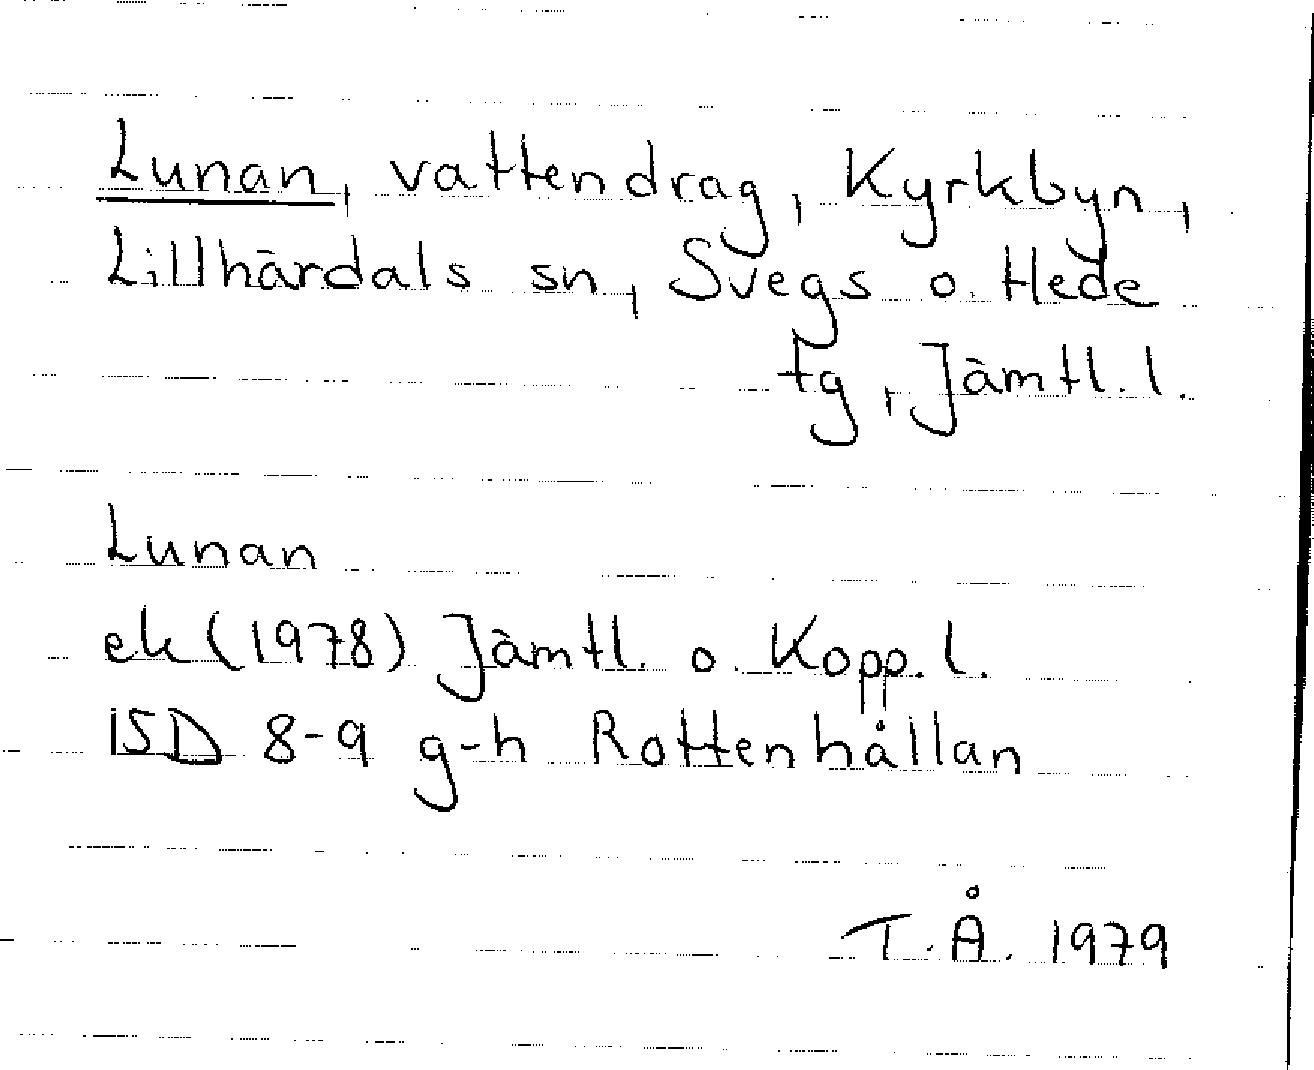 Lunan, vattendrag, Kyrkbyn,
Lillhärdals sn, Svegs o. Hede
tg, Jämtl. l.
Lunan
ek (1978) Jämtl. o. Kopp. l.
15D 8-9 g-h Rottenhållan
T.Å. 1979